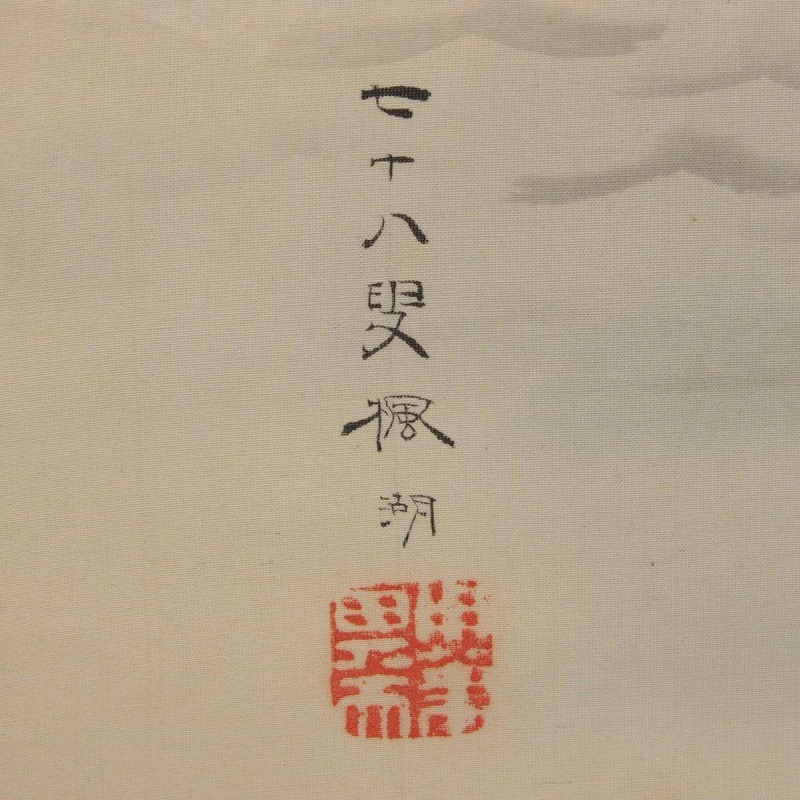 七十八叟楓湖